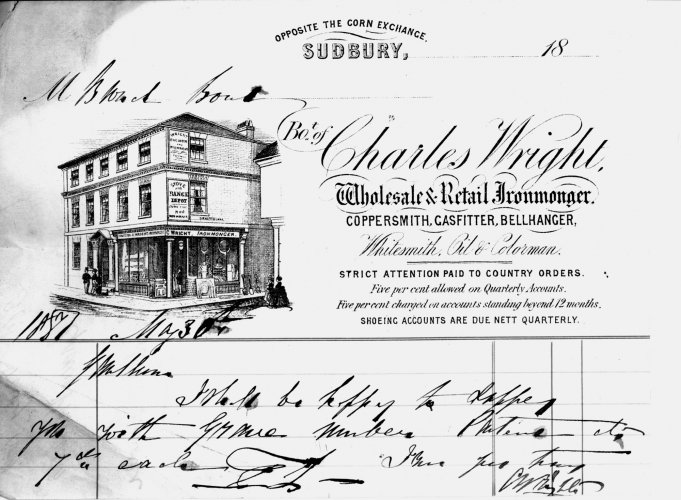 OPPOSITE THE CORN EXCHANGE.
SUDBURY,
18
Bot. of
Charles Wright,
Wholesale & Retail Ironmonger,
COPPERSMITH, GASFITTER, BELLHANGER,
Whitesmith, Oil & Colorman.
STRICT ATTENTION PAID TO COUNTRY ORDERS.
Five per cent allowed on Quarterly Accounts.
Five per cent charged on accounts standing beyond 12 months.
SHOEING ACCOUNTS ARE DUE NETT QUARTERLY.
WRIGHT
STOVE
RANGE
DEPOT
WRIGHT, IRONMONGER
May 30
Gentlemen
I shall be happy to supply
you with Grave number
7d each